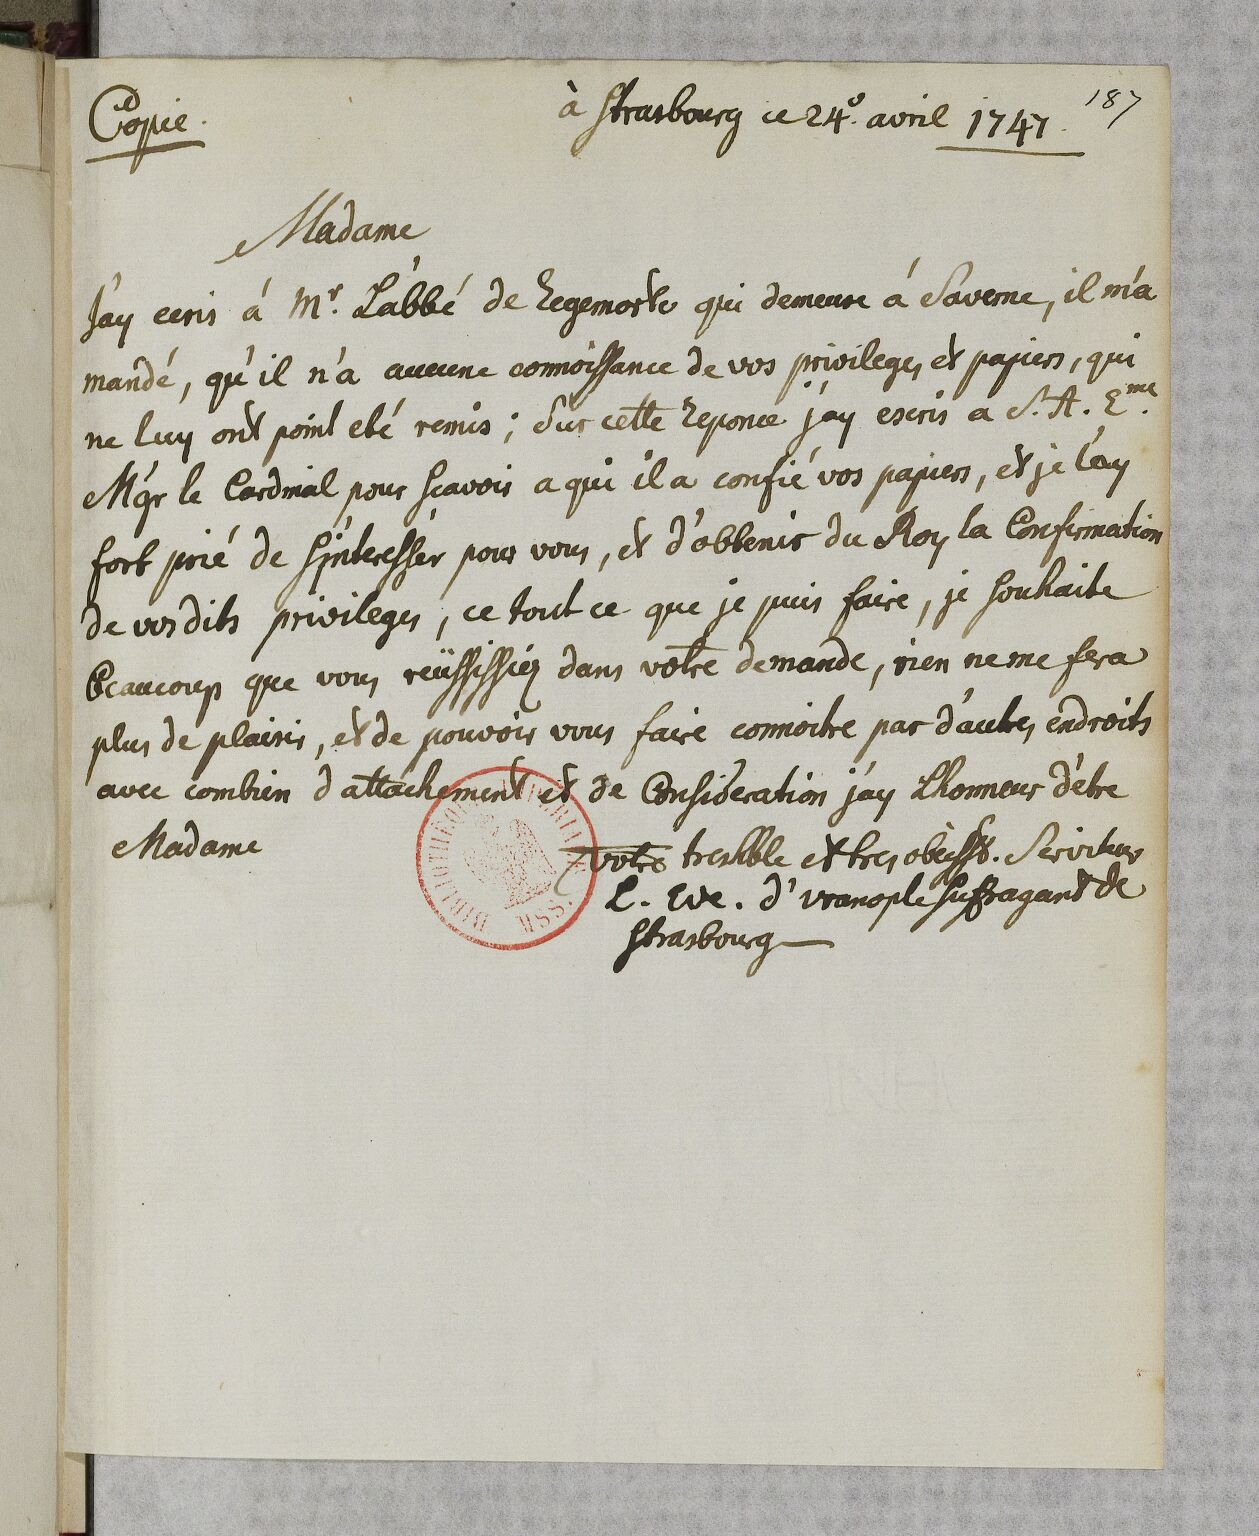 187
Copie.
à Strasbourg ce 24e. avril 1747.
Madame
J'ay ecris á Mr. L'abbé de Regemorte qui demeure á Saverne, il m'a
mandé, qu'il n'a aucune connoissance de vos privileges et papiers, qui
ne luy ont point eté remis; Sur cette Reponce j'ay escris a S. A. Eme.
M'gr le Cardinal pour scavoir a qui il a confié vos papiers, et je l'ay
fort prié de s'jnteresser pour vous, et d'obtenir du Roy la Confirmation
de vosdits privileges, ce tout ce que je puis faire, je souhaite
Beaucoup que vous reüssissiez dans vôtre demande, rien ne me fera
plus de plaisir, et de pouvoir vous faire connoitre par d'autres endroits
avec combien d'attachement et de Consideration j'ay L'honneur d'etre
Madame
votre treshble et tres obeisst. Serviteur
L. Eve. d'uranople suffragant de
Strasbourg
BIBLIOTHÈQUE IMPÉRIALE MSS.